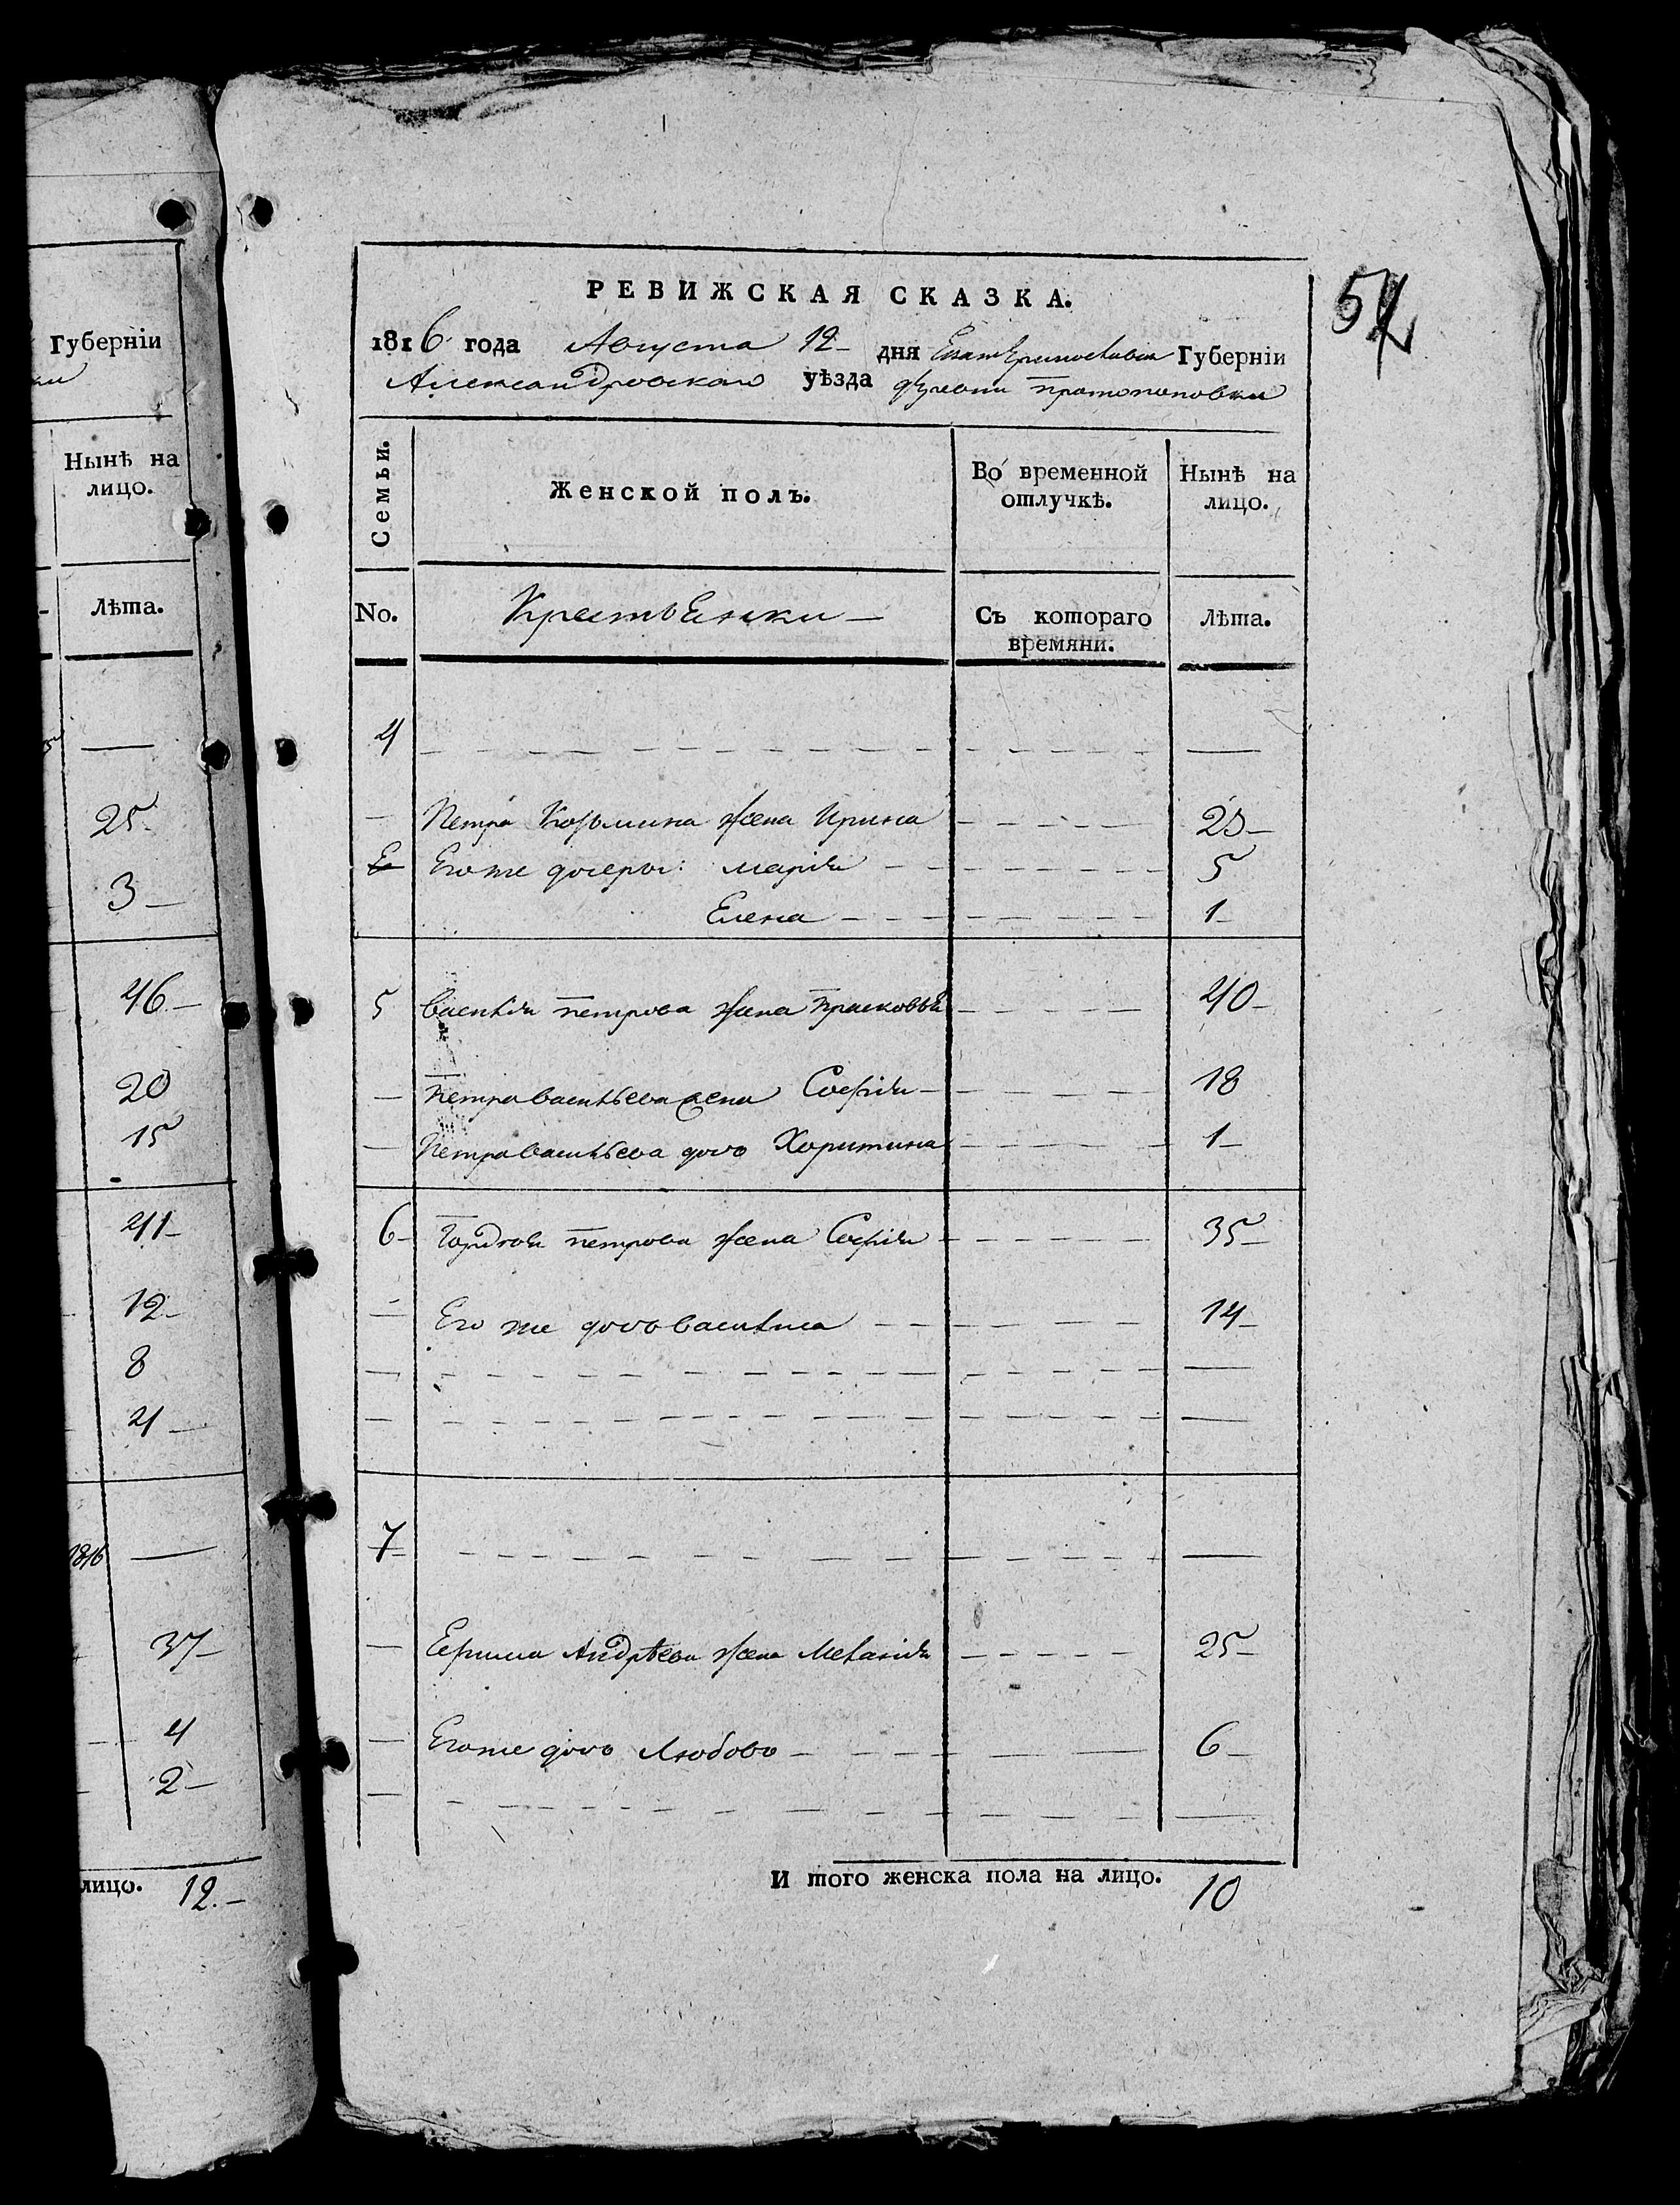 Губерніи
Нынѣ на
лицо.
Лѣта.
25
3
46
20
15
41
12
8
4
1816
37
4
2
лицо. 12.
54
РЕВИЖСКАЯ СКАЗКА.
1816 года Августа 12 дня Екатеринославской Губерніи
Александровскаго уѣзда деревни протопоповки
Семьи.
Женской полъ.
Во временной
отлучкѣ.
Нынѣ на
лицо.
No.
Крестьянки
Съ котораго
времяни.
Лѣта.
4
Петра Козьмина жена Ирина 25
Егоже дочеры: марія 5
Елена 1
5 василія петрова жена прасковья 40
петра васильева жена Софія 18
Петра васильева дочь Харитина 1
6 Гордѣя петрова жена Софія 35
Его же дочь василиса 14
7
Ефима Андрѣева жена Меланія 25
Егоже дочь Любовь 6
И того женска пола на лицо. 10